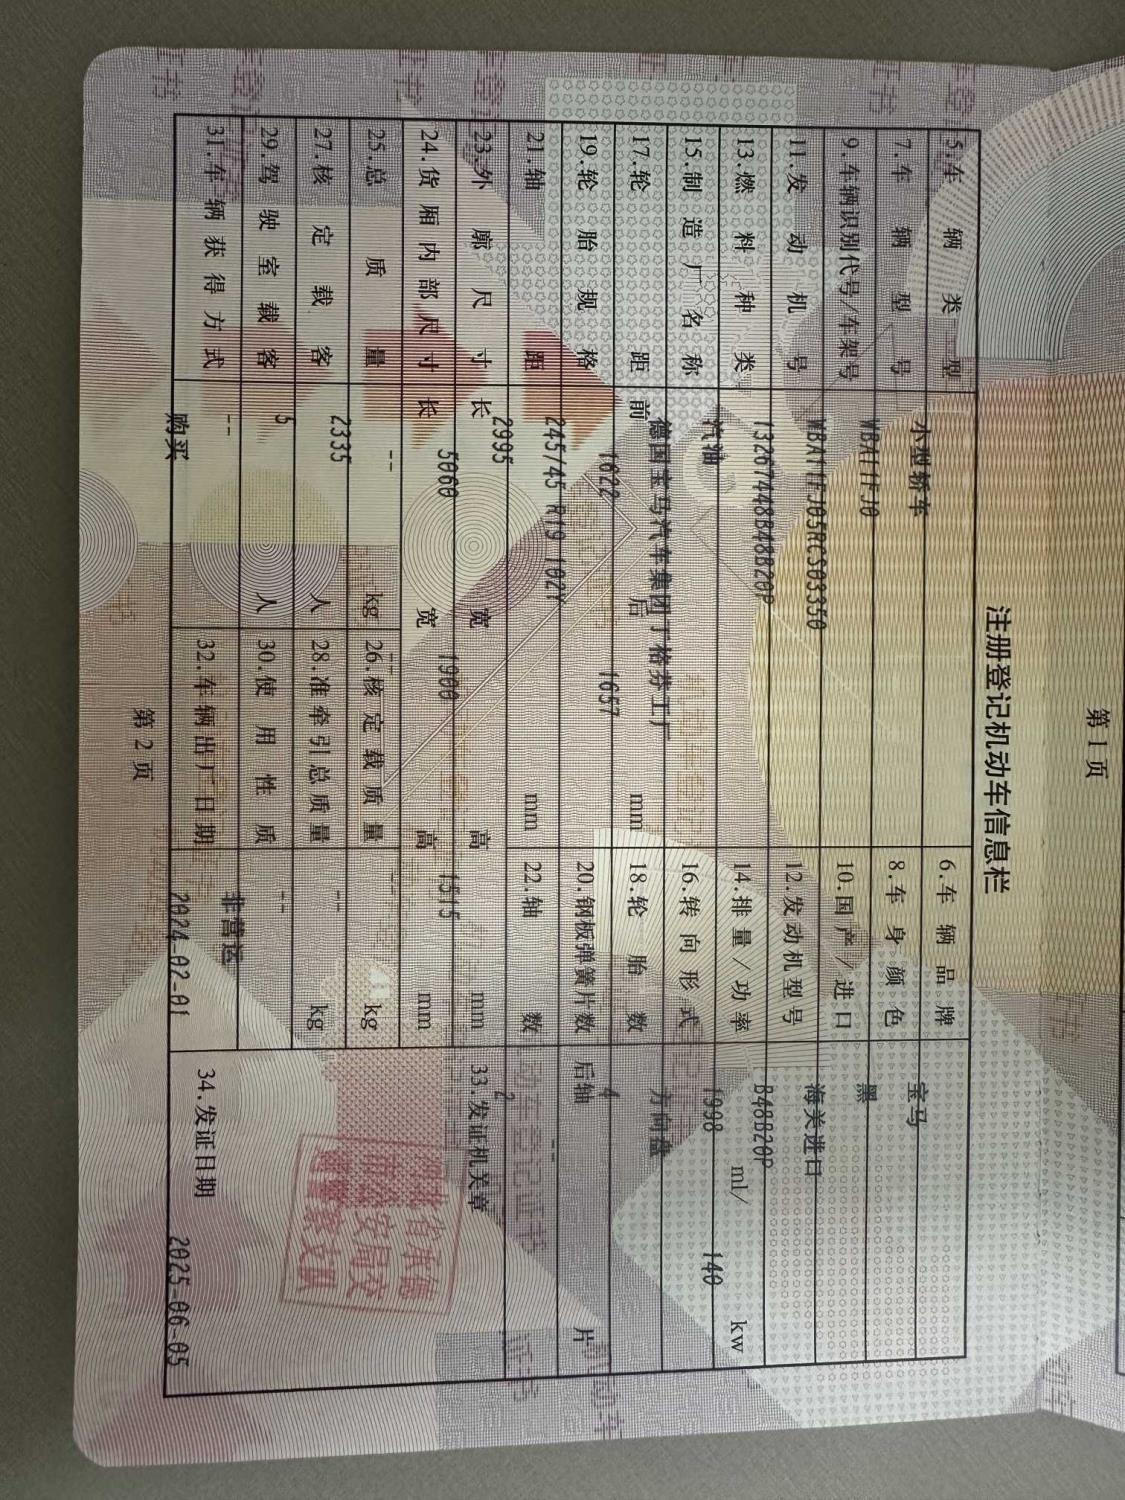 第1页
注册登记机动车信息栏
5.车辆类型 小型轿车 6.车辆品牌 宝马
7.车辆型号 WBA11FJ0 8.车身颜色 黑
9.车辆识别代号/车架号 WBA11FJ05RCS03350 10.国产/进口 海关进口
11.发动机号 13267448B48B20P 12.发动机型号 B48B20P
13.燃料种类 汽油 14.排量/功率 1998 ml/ 140 kw
15.制造厂名称 德国宝马汽车集团丁格芬工厂 16.转向形式 方向盘
17.轮距 前 1622 后 1657 mm 18.轮胎数 4
19.轮胎规格 245/45 R19 102Y 20.钢板弹簧片数 后轴 -- 片
21.轴距 2995 mm 22.轴数 2
23.外廓尺寸 长 5060 宽 1900 高 1515 mm 33.发证机关章
24.货厢内部尺寸 长 -- 宽 -- 高 -- mm
25.总质量 2335 kg 26.核定载质量 -- kg
27.核定载客 5 人 28.准牵引总质量 -- kg
29.驾驶室载客 -- 人 30.使用性质 非营运
31.车辆获得方式 购买 32.车辆出厂日期 2024-02-01 34.发证日期 2025-06-05
省承德
市公安局交
警察支队
第2页